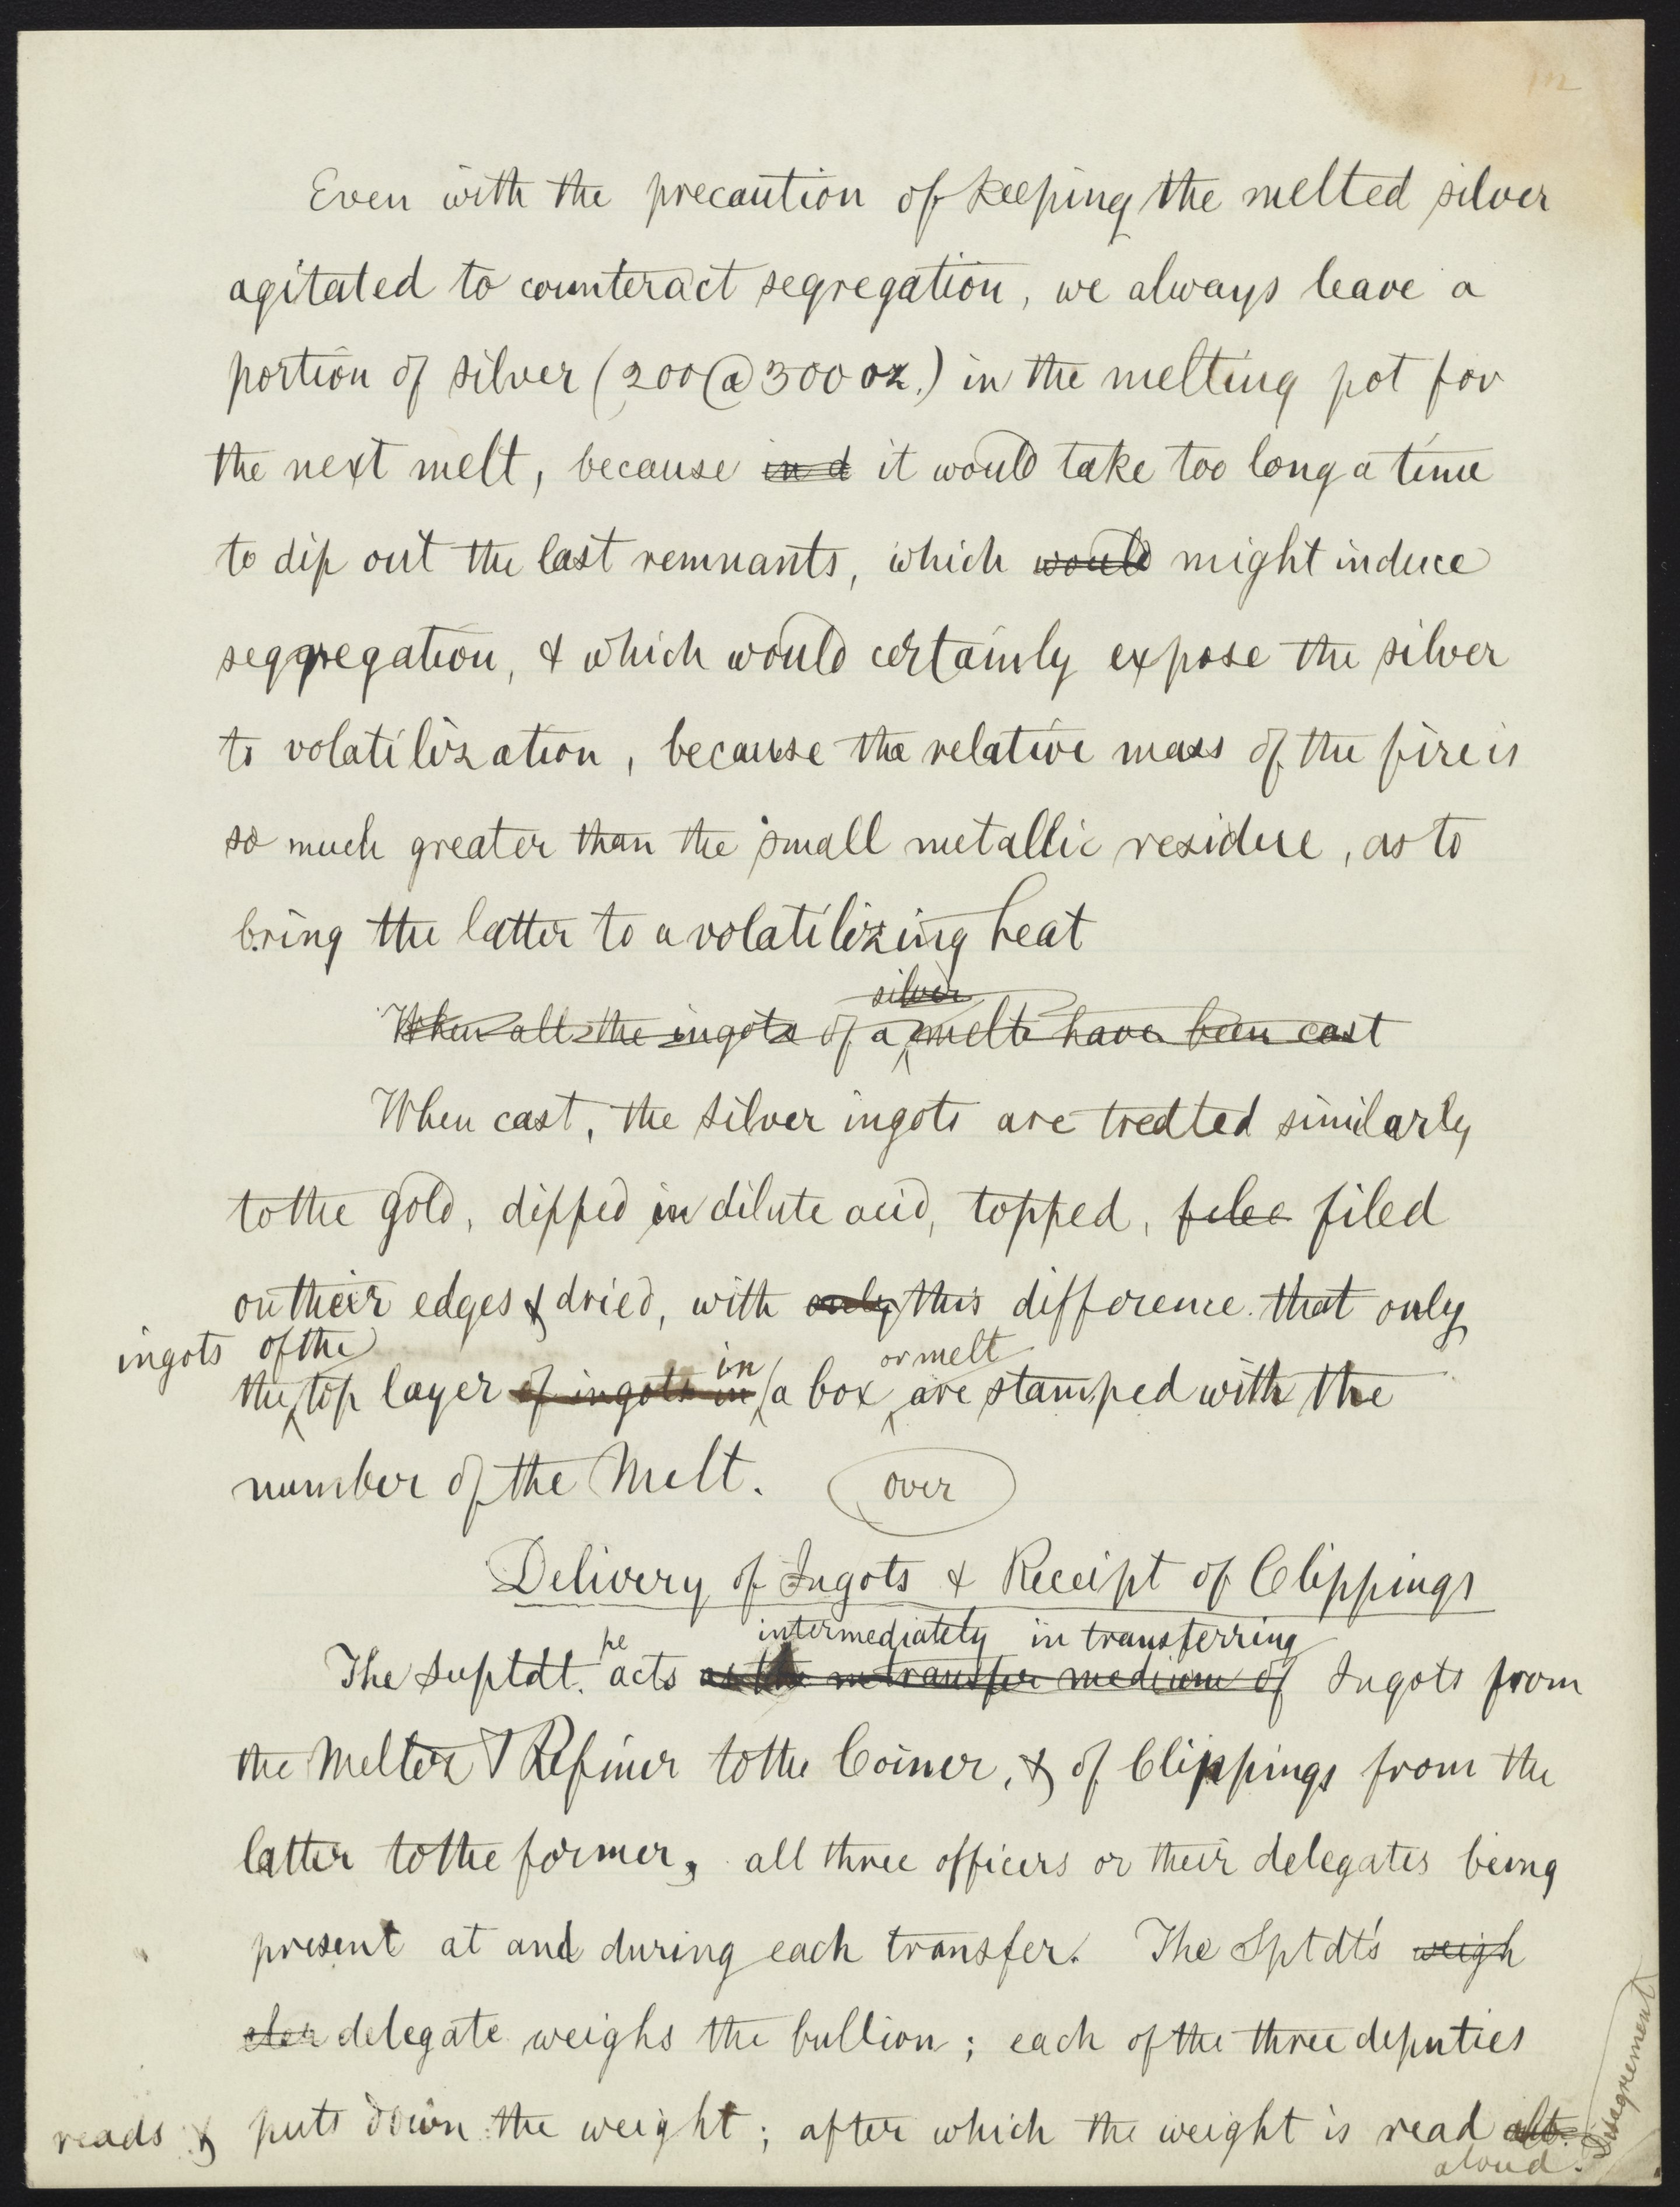 Even with the precaution of keeping the melted silver
agitated to counteract segregation, we always leave a
portion of silver (200 @ 300 oz.) in the melting pot for
the next melt, because in d it would take too long a time
to dip out the last remnants, which would might induce
seggregation, & which would certainly expose the silver
to volatilization, because the relative mass of the fire is
so much greater than the small metallic residue, as to
bring the latter to a volatilizing heat
silver
When all the ingots of a melt have been cast
When cast, the silver ingots are treated similarly
to the gold, dipped in dilute acid, topped, filee filed
on their edges & dried, with only this difference that only
ingots of the
in or melt
the top layer of ingots in a box are stamped with the
number of the Melt. over
Delivery of Ingots & Receipt of Clippings
intermediately in transferring
The Suptdt. acts as the transfer medium of Ingots from
the Melter & Refiner to the Coiner, & of Clippings from the
latter to the former, all three officers or their delegates being
present at and during each transfer. The Sptdt's weigh
delegate weighs the bullion; each of the three deputies
reads & puts down the weight; after which the weight is read
aloud. Disagreement